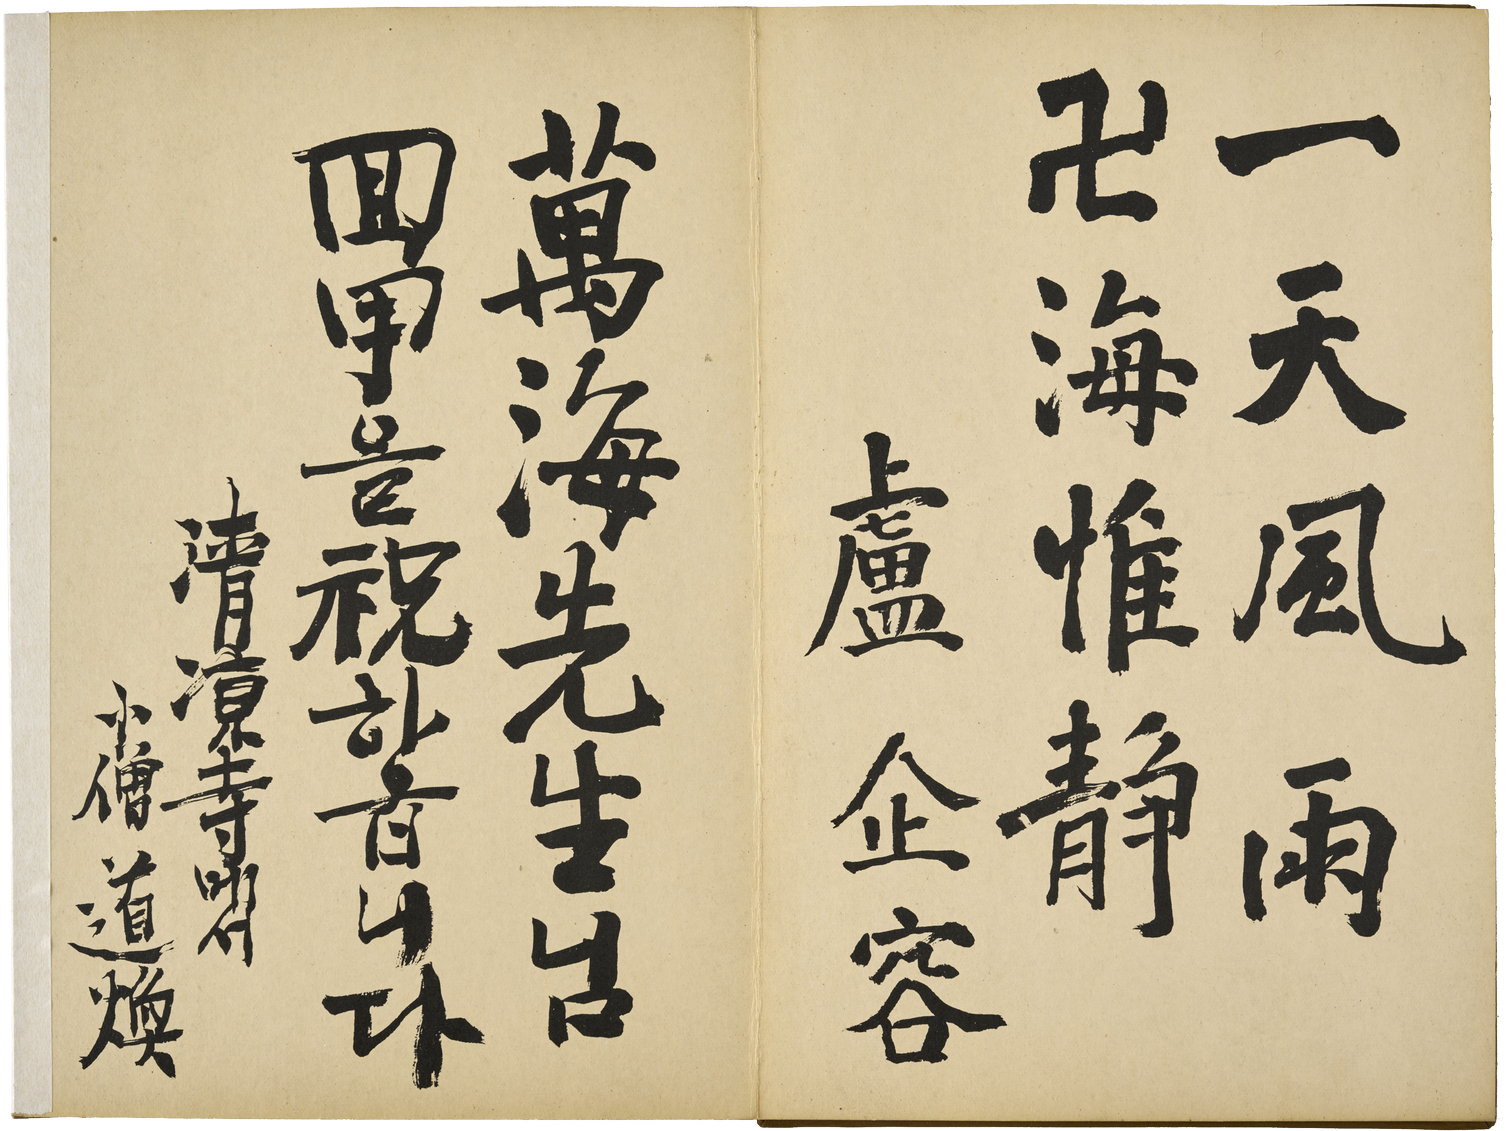 一天風雨
卍海惟静
盧企容
萬海先生님
回甲을祝하옵니다
清凉寺에서
小僧 道煥